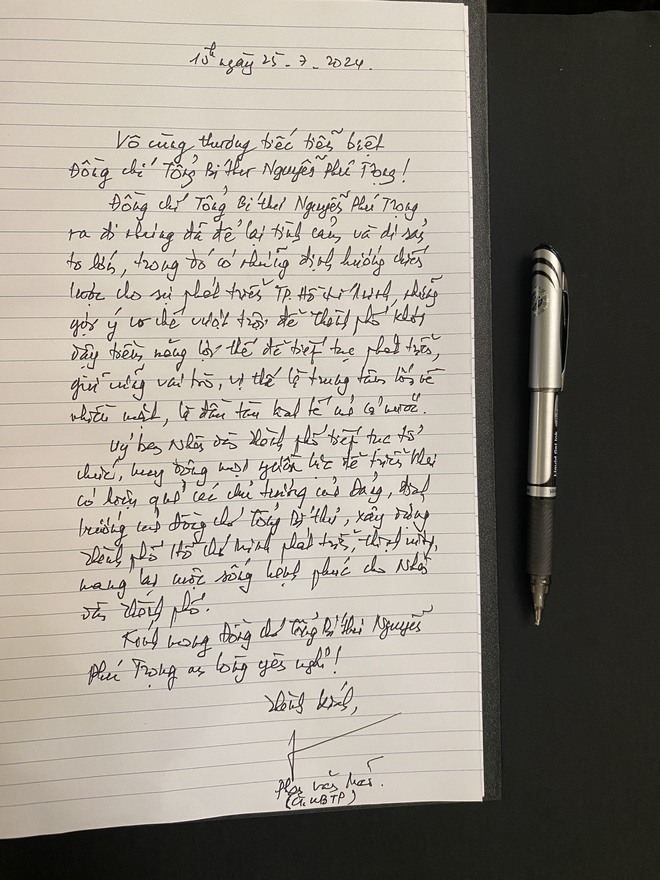 10h ngày 25-7-2024.
Vô cùng thương tiếc tiễn biệt
Đồng chí Tổng Bí thư Nguyễn Phú Trọng!
Đồng chí Tổng Bí thư Nguyễn Phú Trọng
ra đi nhưng đã để lại tình cảm và di sản
to lớn, trong đó có những định hướng chiến
lược cho sự phát triển TP. Hồ Chí Minh, những
gợi ý cơ chế vượt trội để Thành phố khơi
dậy tiềm năng lợi thế để tiếp tục phát triển,
giữ vững vai trò, vị thế là trung tâm lớn về
nhiều mặt, là đầu tàu kinh tế của cả nước.
Uỷ ban Nhân dân Thành phố tiếp tục tổ
chức, huy động mọi nguồn lực để triển khai
có hiệu quả các chủ trương của Đảng, định
hướng của đồng chí Tổng Bí thư, xây dựng
Thành phố Hồ Chí Minh phát triển, thịnh vượng,
mang lại cuộc sống hạnh phúc cho Nhân
dân Thành phố.
Kính mong Đồng chí Tổng Bí thư Nguyễn
Phú Trọng an lòng yên nghỉ!
Thành kính,
Phan Văn Mãi.
(CT. UBTP)